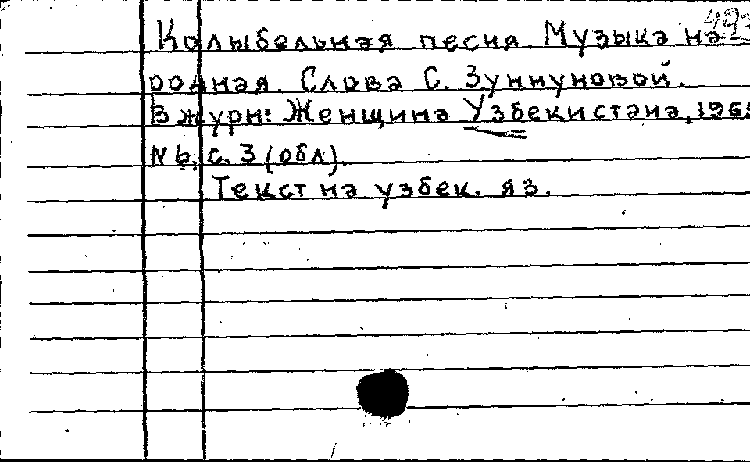 Колыбельная песня. Музыка на
родная. Слова С. Зуннуновой.
В журн: Женщина Узбекистана,
N 6, с. 3 (обл).
Текст на узбек. яз.